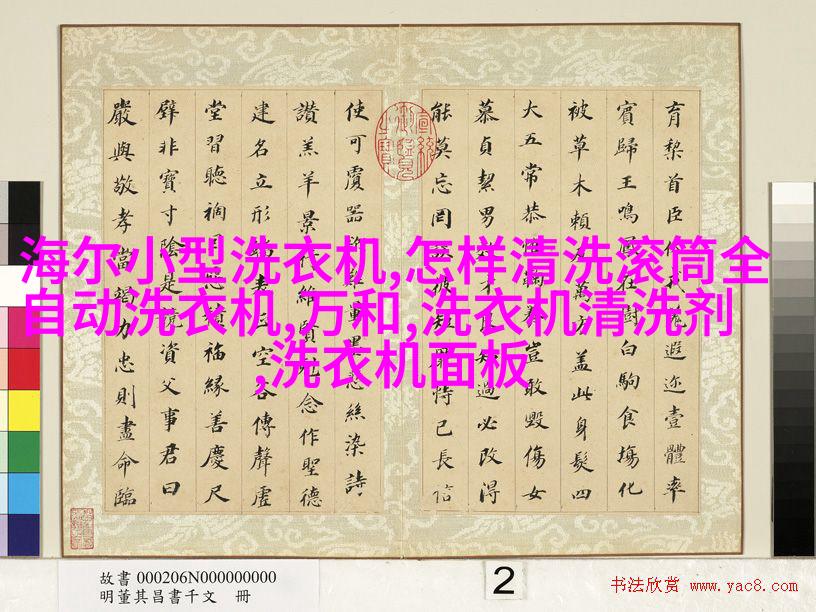 育黎首臣伏戎羌遐迩壹體率
賓歸王鳴鳳在樹白駒食塲化
被草木賴及萬方蓋此身髮四
大五常恭惟鞠養豈敢毁傷女
慕貞絜男效才良知過必改得
能莫忘罔談彼短靡恃己長信
使可覆器欲難量墨悲絲染詩
讚羔羊景行維賢剋念作聖德
建名立形端表正空谷傳聲虛
堂習聽禍因惡積福緣善慶尺
璧非寶寸陰是競資父事君曰
嚴與敬孝當竭力忠則盡命臨
海尔小型洗衣机,怎样清洗滚筒全
自动洗衣机,万和,洗衣机清洗剂
,洗衣机面板
故書 000206N000000000
明董其昌書千文 冊
2
书法欣赏 www.yac8.com